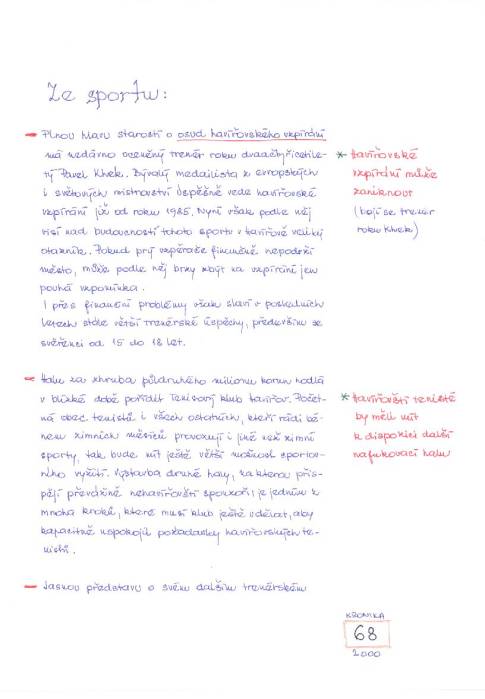 Ze sportu:
- Plnou hlavu starostí o osud havířovského vzpírání
má nedávno oceněný trenér roku dvaačtyřicetile-
tý Pavel Khek. Bývalý medailista z evropských
i světových mistrovství úspěšně vede havířovské
vzpírání již od roku 1985. Nyní však podle něj
visí nad budoucností tohoto sportu v Havířově velikej
otazník. Pokud prý vzpěrače finančně nepodrží
město, může podle něj brzy zbýt na vzpírání jen
pouhá vzpomínka.
I přes finanční problémy však slaví v posledních
letech stále větší trenérské úspěchy, především se
svěřenci od 15 do 18 let.
* Havířovské
vzpírání může
zaniknout
(bojí se trenér
roku Khek)
- Halu za zhruba půldruhého milionu korun hodlá
v blízké době pořídit Tenisový klub Havířov. Početná
obec tenistů i všech ostatních, kteří rádi bě-
hem zimních měsíců provozují i jiné než zimní
sporty, tak bude mít ještě větší možnost sportov-
ního vyžití. Výstavba druhé haly, na kterou přis-
pějí převážně nehavířovští sponzoři, je jedním z
mnoha kroků, které musí klub ještě udělat, aby
kapacitně uspokojil požadavky havířovských te-
nistů.
* Havířovští tenisté
by měli mít
k dispozici další
nafukovací halu
- Jasnou představu o svém dalším trenérském
KRONIKA
68
2000